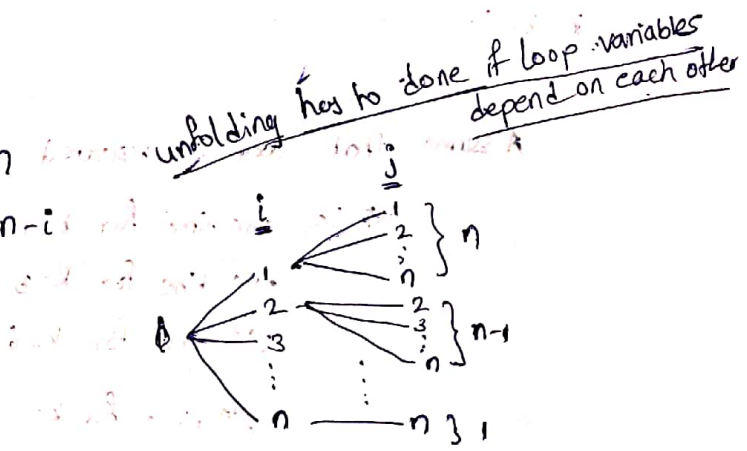 unfolding has to done if loop variables
depend on each other
n
n-i
i
j
1
2
⋮
n
} n
1
2
3
⋮
n
2
3
⋮
n
} n-1
⋮
n } 1